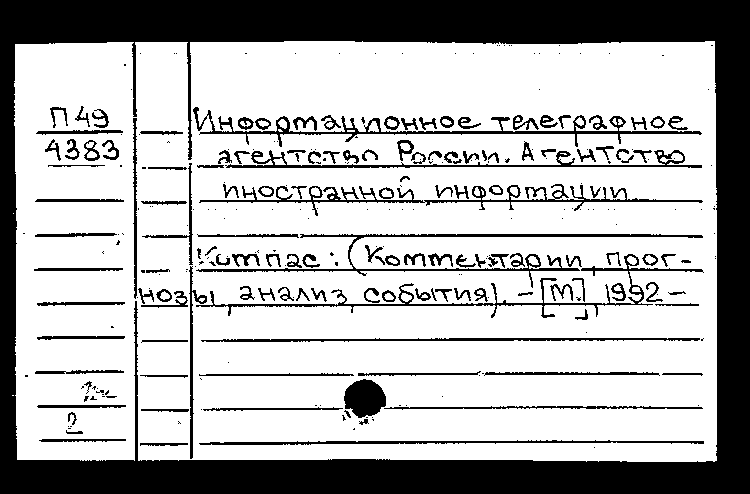 П49
4383
Информационное телеграфное
агентство России. Агентство
иностранной информации
Компас: (Комментарии, прог-
нозы, анализ, события). – [М.], 1992 –
2